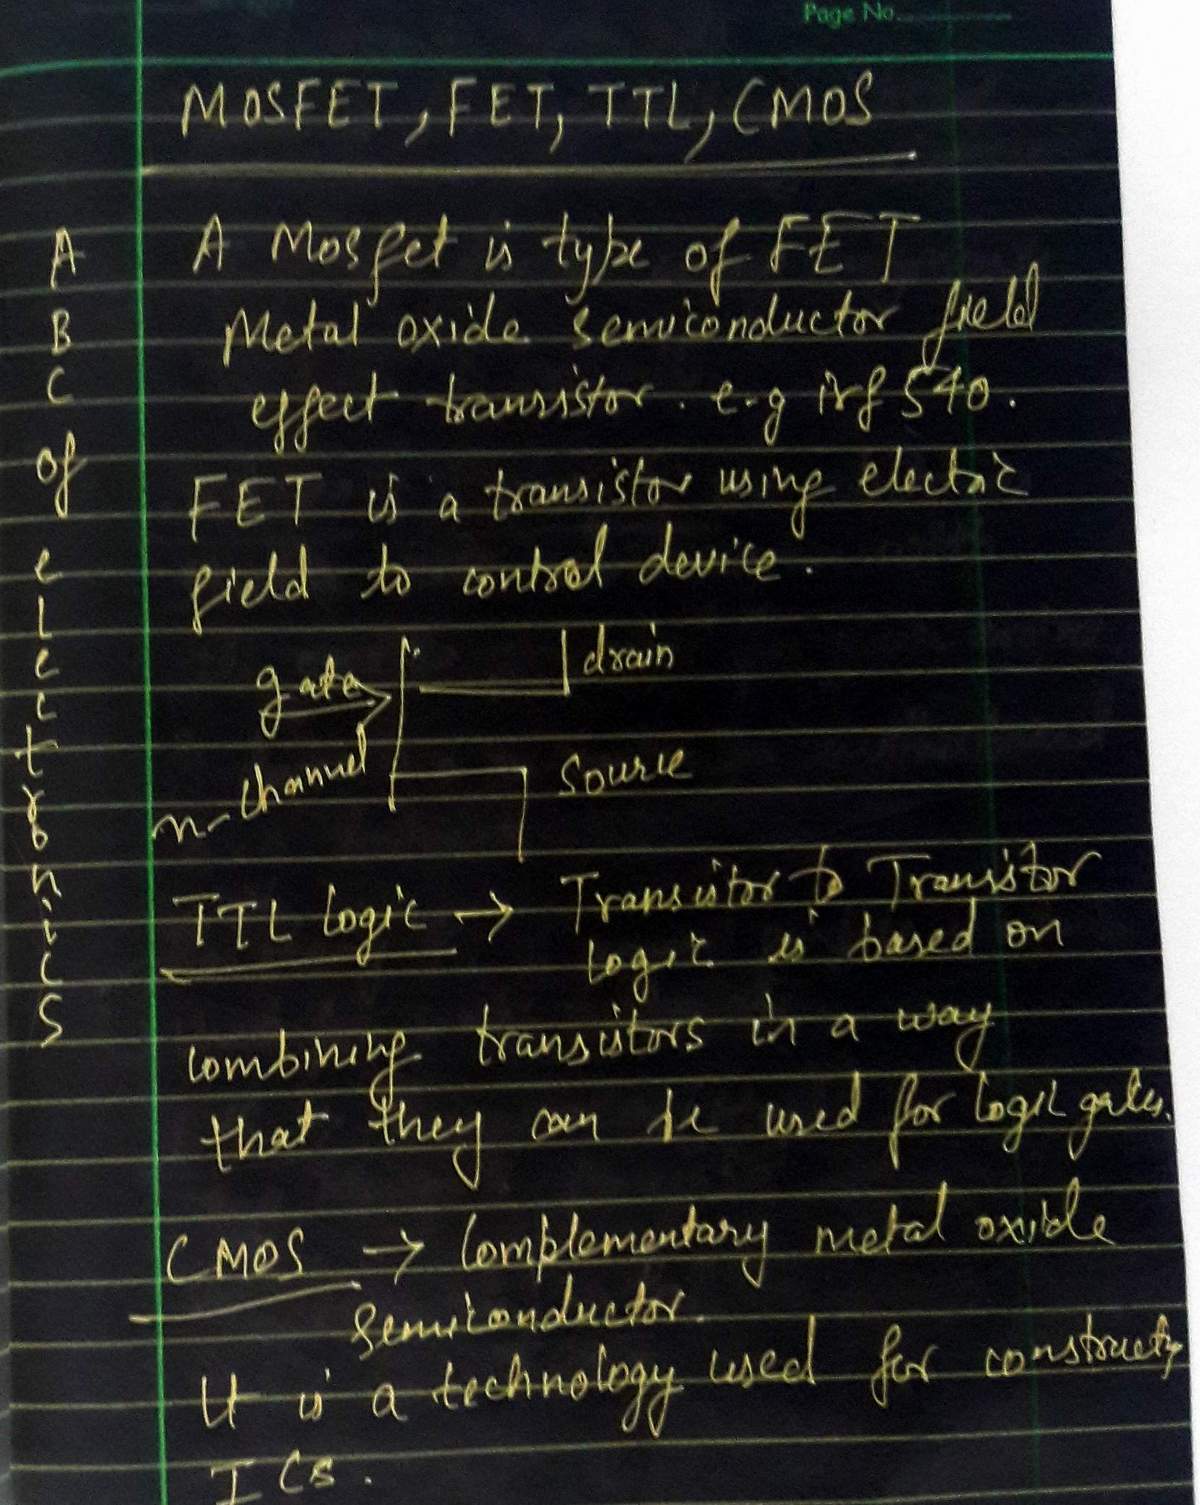 Page No.
MOSFET, FET, TTL, CMOS
A Mosfet is type of FET
Metal oxide semiconductor field
effect transistor. e.g irf 540.
FET is a transistor using electric
field to control device.
gate
drain
n-channel
source
TTL Logic → Transistor to Transistor
Logic is based on
combining transistors in a way
that they can be used for logic gates.
CMOS → Complementary metal oxide
semiconductor.
It is a technology used for
ICs.
A
B
C
of
e
l
e
c
t
r
o
n
i
c
s